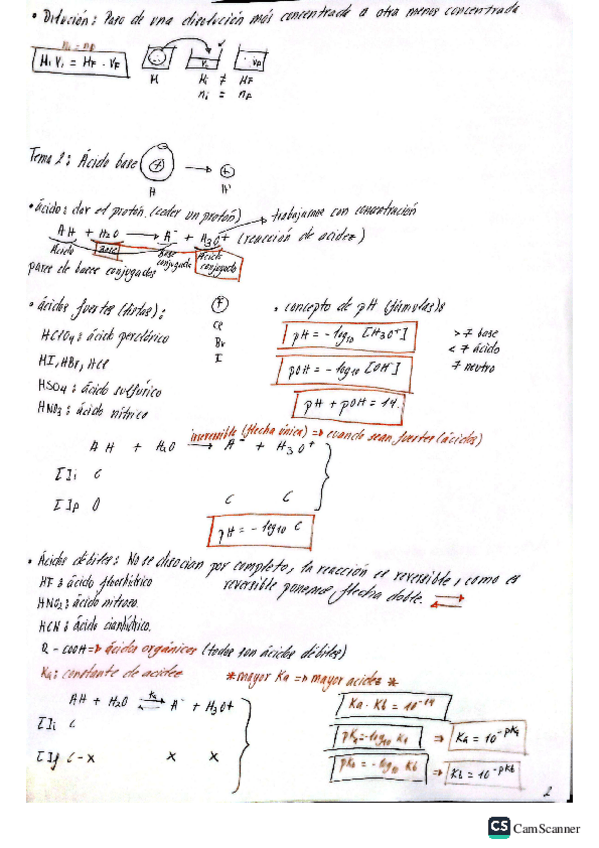 • Dilución: Paso de una disolución más concentrada a otra menos concentrada
ni = nF
Mi Vi = MF · VF
M
Mi ≠ MF
ni = nF
Tema 2: Ácido base
H
H⁺
• ácido: dar el protón (ceder un protón)
→ trabajamos con concentración
AH + H₂O → A⁻ + H₃O⁺ (reacción de acidez)
Ácido Base Base conjugada Ácido conjugado
pares de bases conjugadas
• ácidos fuertes (listas):
F
Cl
Br
I
HClO₄: ácido perclórico
HI, HBr, HCl
HSO₄: ácido sulfúrico
HNO₃: ácido nítrico
• concepto de pH (fórmulas):
pH = -log₁₀ [H₃O⁺]
pOH = -log₁₀ [OH⁻]
pH + pOH = 14
> 7 base
< 7 ácido
7 neutro
irreversible (flecha única) => cuando sean fuertes (ácidos)
AH + H₂O → A⁻ + H₃O⁺
[ ]i C
[ ]F 0 C C
pH = -log₁₀ C
• Ácidos débiles: No se disocian por completo, la reacción es reversible, como es
reversible ponemos flecha doble.
HF: ácido fluorhídrico
HNO₂: ácido nitroso.
HCN: ácido cianhídrico.
R - COOH => ácidos orgánicos (todos son ácidos débiles)
Ka: constante de acidez
*mayor Ka => mayor acidez *
AH + H₂O ⇌ A⁻ + H₃O⁺
Ka
[ ]i C
[ ]f C-X X X
Ka · Kb = 10⁻¹⁴
pKa = -log₁₀ Ka => Ka = 10^-pKa
pKb = -log₁₀ Kb => Kb = 10^-pKb
2
CS CamScanner